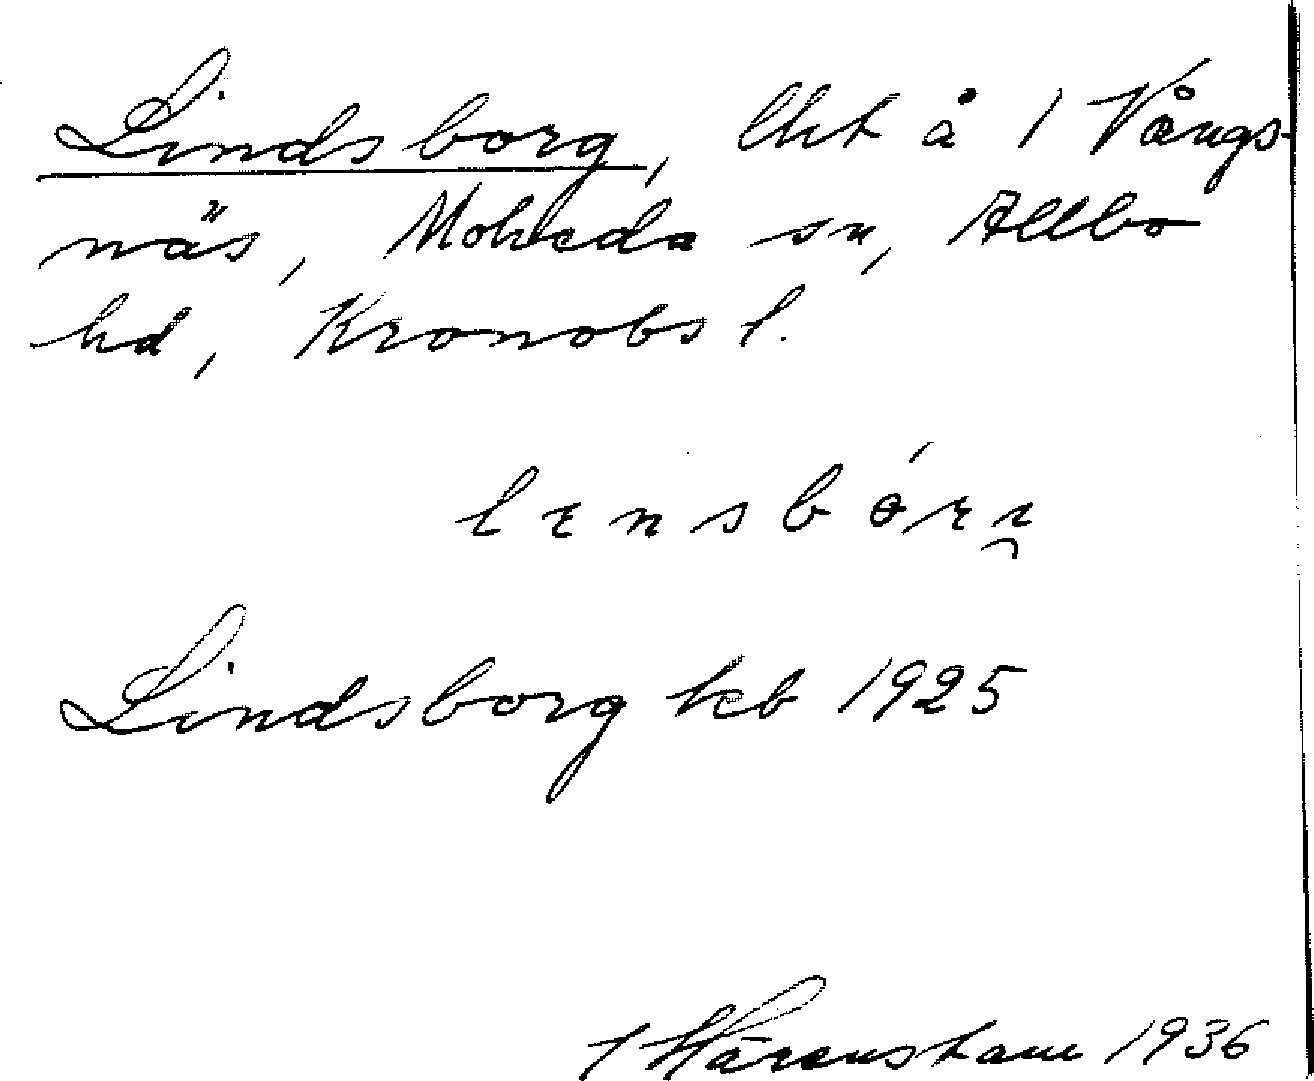 Lindsborg, lht å 1 Vångs-
näs, Moheda sn, Allbo
hd, Kronobs l.
lɪnsbórɪ̯
Lindsborg kb 1925
1936